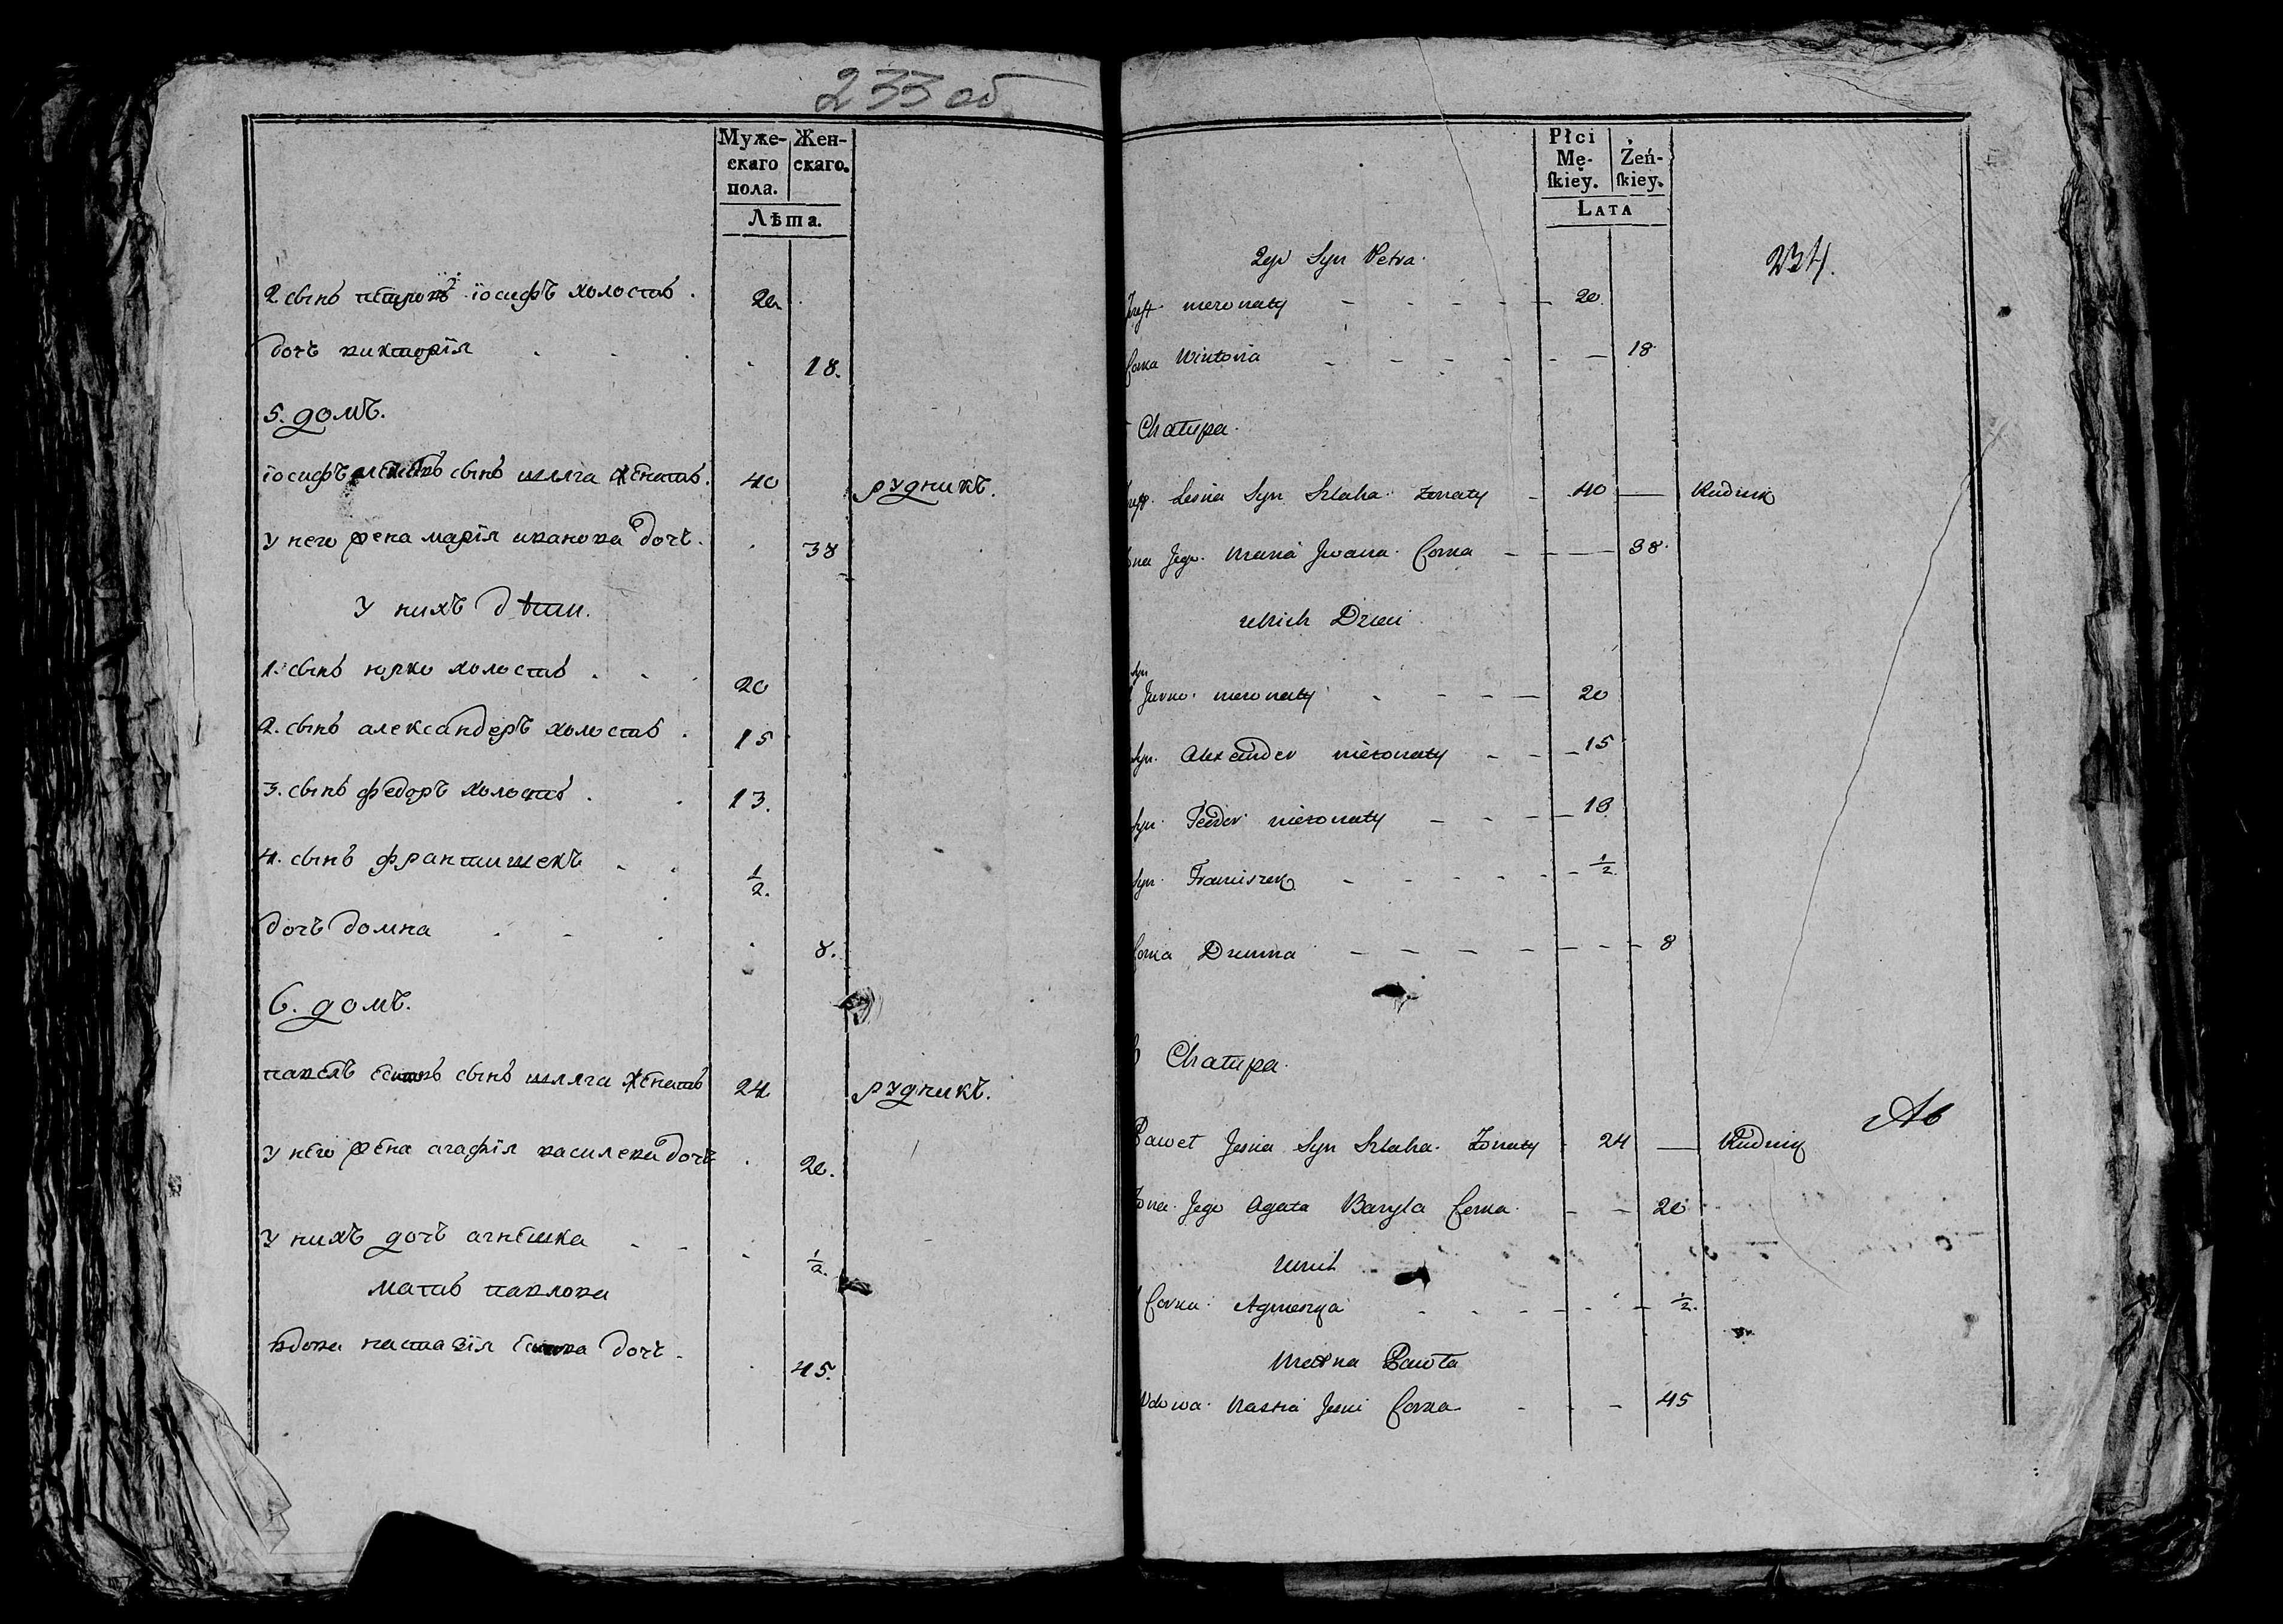 233 об
Муже- Жен-
скаго скаго.
пола.
Лѣта.
2 сынъ петровъ іосифъ холостъ . 20
дочъ викторія . . . . 18.
5. домъ.
іосифъ сынъ шляга женатъ. 40 рудникъ.
у него жена марія иванова дочъ. . 38
У нихъ дѣти.
1. сынъ юрко холостъ . . . 20
2. сынъ александеръ холостъ . 15
3. сынъ федоръ холостъ . . 13.
4. сынъ франтишекъ . . 1/2.
дочъ домна . . . . 8.
6. домъ.
павелъ сынъ шляга женатъ 24 рудникъ.
у него жена агафія василева дочъ . 20.
У нихъ дочъ агнешка . . . 1/2.
матъ павлова
вдова настазія дочъ. . 45.
Płci
Mę- Żeń-
ſkiey. ſkiey.
LATA
234.
2gi Syn Petra
niezonaty 20.
Corka Wiktoria 18
Chałupa.
Syn Szlaha Zonaty 40 Rudnik
Jego Maria Jwana Corka 38.
unich Dzieci
Syn
Jurko niezonaty 20
Syn. Alexander niezonaty 15
Syn Feodor niezonaty 13
Syn Franciszek 1/2
Corka 8
6 Chałupa.
Paweł Jesia Syn Szlaha. Zonaty 24 Rudnik
Zona Jego Agata Bazyla Corka 20
unich
1 Corka Agnieszka 1/2.
Matka Pawła
Wdowa Corka 45